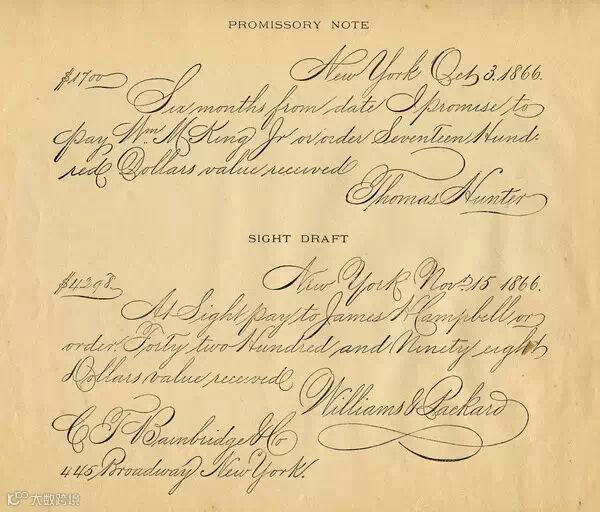 PROMISSORY NOTE
$1700 New York Oct 3. 1866.
Six months from date I promise to
pay Wm M King Jr or order Seventeen Hund-
red Dollars value received
Thomas Hunter
SIGHT DRAFT
$4298. New York Nov. 15 1866.
At Sight pay to James H Campbell or
order Forty two Hundred and Ninety eight
Dollars value received
Williams & Packard
C T Bainbridge & Co
445 Broadway New York.
大数跨境